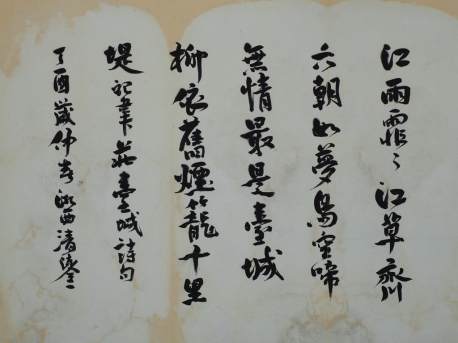 江雨霏々江草齊
六朝如夢鳥空啼
無情最是臺城
柳依舊煙籠十里
堤 祀韋莊臺城詩句
丁酉歲仲春 西清